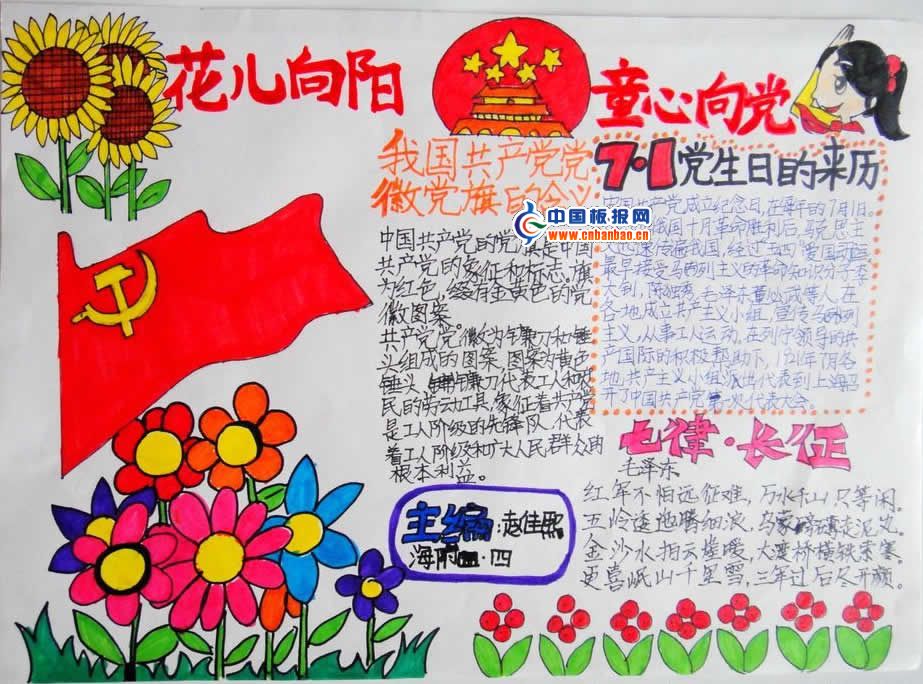 花儿向阳
童心向党
我国共产党党
徽党旗的含义
中国板报网
www.cnbanbao.cn
中国共产党的党旗是中国
共产党的象征和标志。旗
为红色,缀有金黄色的党
徽图案。
共产党党徽为镰刀和锤
头组成的图案,图案为黄色
锤头、镰刀代表工人和农
民的劳动工具,象征着共产党
是工人阶级的先锋队,代表
着工人阶级和广大人民群众的
根本利益。
7·1党生日的来历
中国共产党成立纪念日,在每年的7月1日。
俄国十月革命胜利后,马克思主
义迅速传播我国,经过"五四"爱国运动,
最早接受马列主义的革命知识分子李
大钊,陈独秀,毛泽东董必武等人,在
各地成立共产主义小组,宣传马列
主义,从事工人运动,在列宁领导的共
产国际的积极帮助下,1921年7月各
地共产主义小组派出代表到上海召
开了中国共产党第一次代表大会。
七律·长征
毛泽东
红军不怕远征难,万水千山只等闲。
五岭逶迤腾细浪,乌蒙磅礴走泥丸。
金沙水拍云崖暖,大渡桥横铁索寒。
更喜岷山千里雪,三军过后尽开颜。
主编:赵佳熙
海附·四